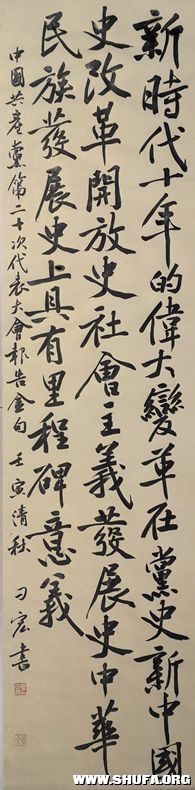 新時代十年的偉大變革在黨史新中國
史改革開放史社會主義發展史中華
民族發展史上具有里程碑意義
中國共產黨第二十次代表大會報告金句 壬寅清秋 刁宏書
WWW.SHUFA.ORG